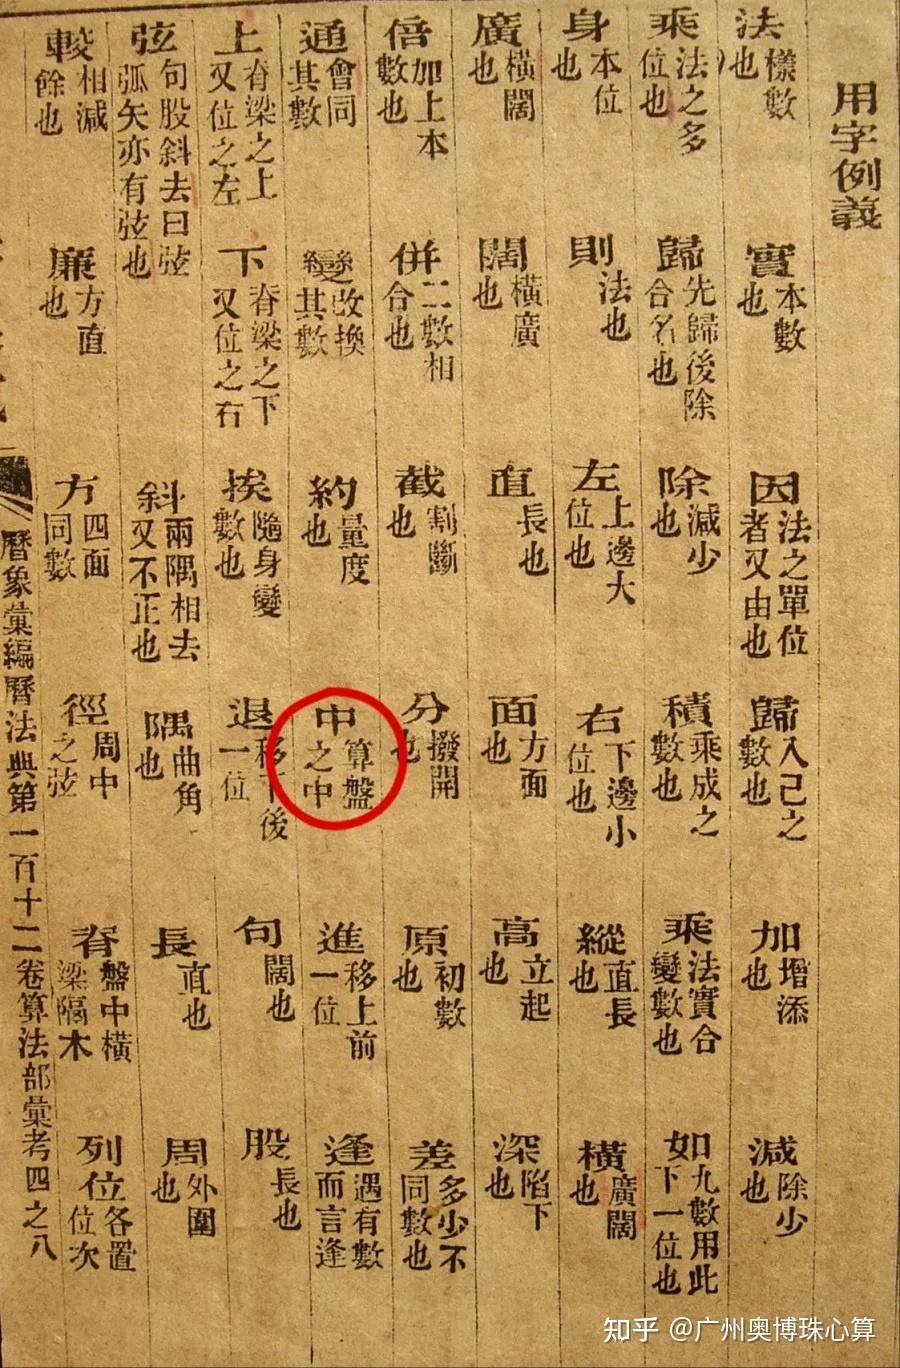 用字例義
法樣數也 實本數也 因法之單位者又由也 歸入己之數也 加增添也 減除少也
乘法之多位也 歸先歸後除合名也 除減少也 積乘成之數也 乘法實合變數也 如九數用此下一位也
身本位也 則法也 左上邊大位也 右下邊小位也 縱直長也 橫廣闊也
廣橫闊也 闊橫廣也 直長也 面方面也 高立起也 深陷下也
倍加上本數也 併二數相合也 截割斷也 分撥開也 原初數也 差多少不同數也
通會同其數 變改換其數 約量度也 中算盤之中 進移上前一位 逢遇有數而言逢
上脊梁之上又位之左 下脊梁之下又位之右 挨隨身變數也 退移下後一位 句闊也 股長也
弦句股斜去曰弦弧矢亦有弦也 斜兩隅相去又不正也 隅曲角也 長直也 周外圍也
較相減餘也 廉方直也 方四面同數 徑周中之弦 脊盤中橫梁隔木 列位各置位次
曆象彙編曆法典第一百十二卷算法部彙考四之八
知乎 @广州奥博珠心算